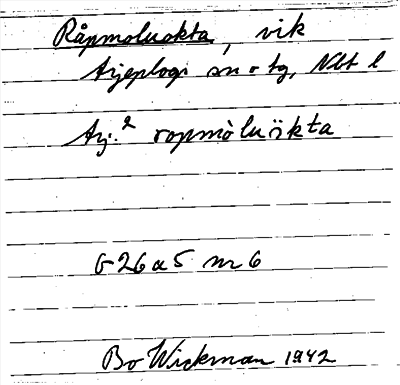 Råpmoluokta, vik
Arjeplogs sn o tg, Nbt l
Arj:² ropmòluòkta
G26a5 nr 6
Bo Wickman 1942